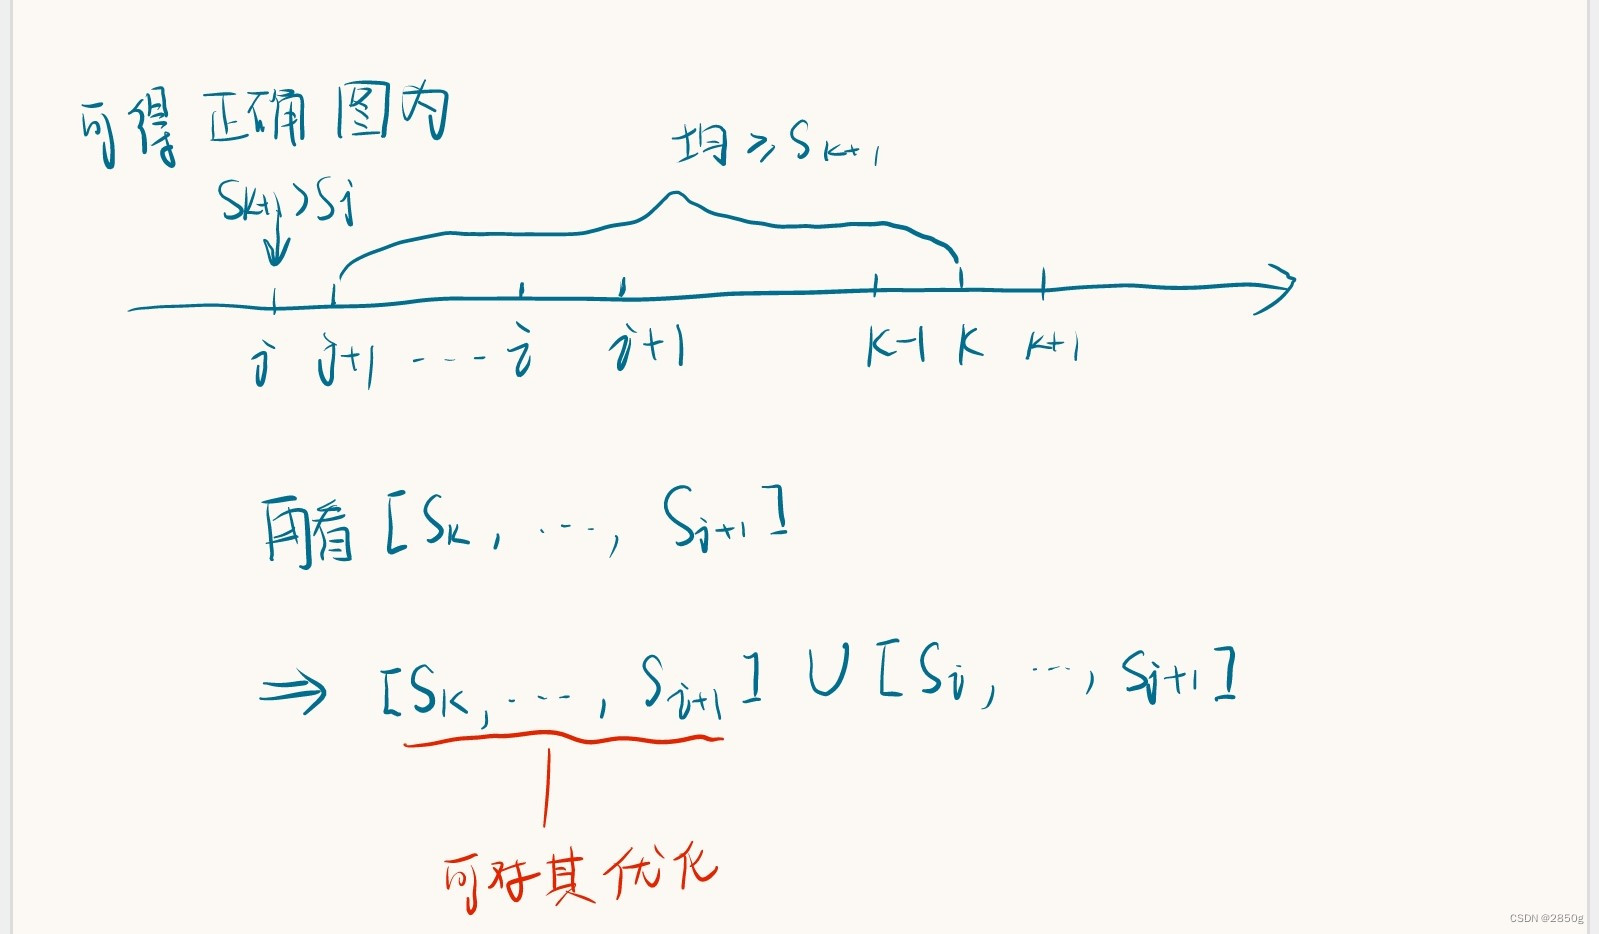 可得 正确 图为
均 ≥ S_{k+1}
S_{k+1} > S_j
j j+1 ---- i i+1 k-1 k k+1
再看 [S_k, ..., S_{j+1}]
⇒ [S_k, ..., S_{i+1}] ∪ [S_i, ..., S_{j+1}]
可对其优化
CSDN @2850g